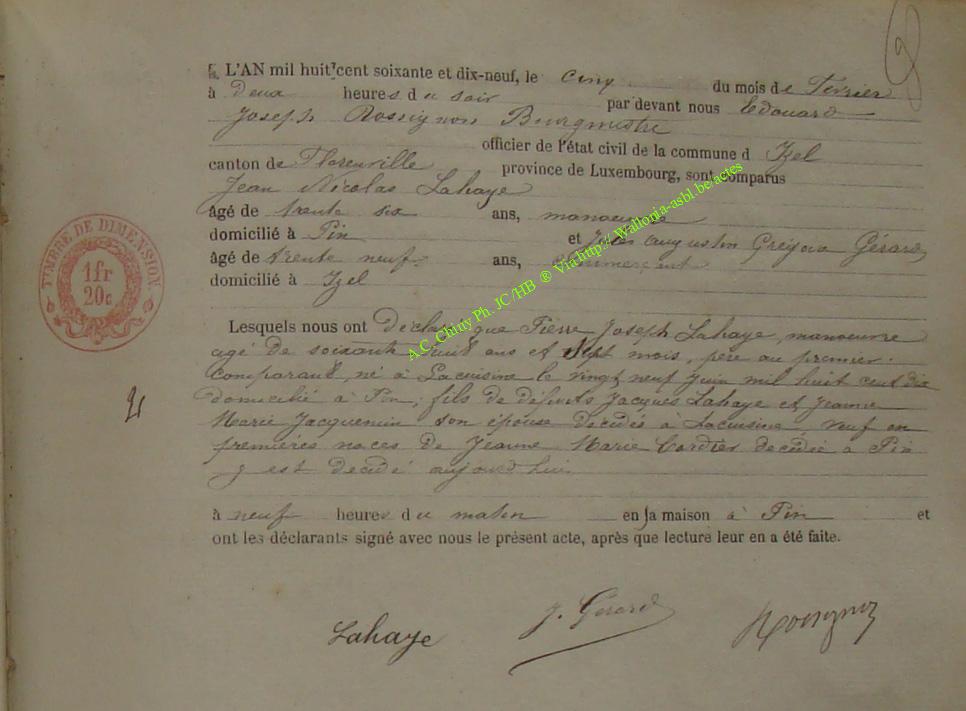 L'AN mil huit cent soixante et dix-neuf, le cinq du mois de Fevrier
à deux heures du soir par devant nous Edouard
Joseph Rossignon Bourgmestre
officier de l'état civil de la commune d Izel
canton de Florenville province de Luxembourg, sont comparus
Jean Nicolas Lahaye
âgé de trente six ans, manoeuvre
domicilié à Pin et Jules augustin Gérard
âgé de trente neuf ans, Commerçant
domicilié à Izel
TIMBRE DE DIMENSION
1fr
20c
A.C. Chiny Ph. JC/HB ® Via http://Wallonia-asbl.be/actes
Lesquels nous ont déclaré que Pierre Joseph Lahaye, manoeuvre
agé de soixante huit ans et sept mois, père au premier
comparant, né à Lacuisine le vingt neuf juin mil huit cent dix
domicilié à Pin, fils de défunts Jacques Lahaye et Jeanne
Marie Jacquemin son épouse décédés à Lacuisine, veuf en
premières noces de Jeanne Marie Cordier décédée à Pin
y est décédé aujourd'hui
à neuf heures du matin en sa maison à Pin et
ont les déclarants signé avec nous le présent acte, après que lecture leur en a été faite.
Lahaye J. Gerard Rossignon